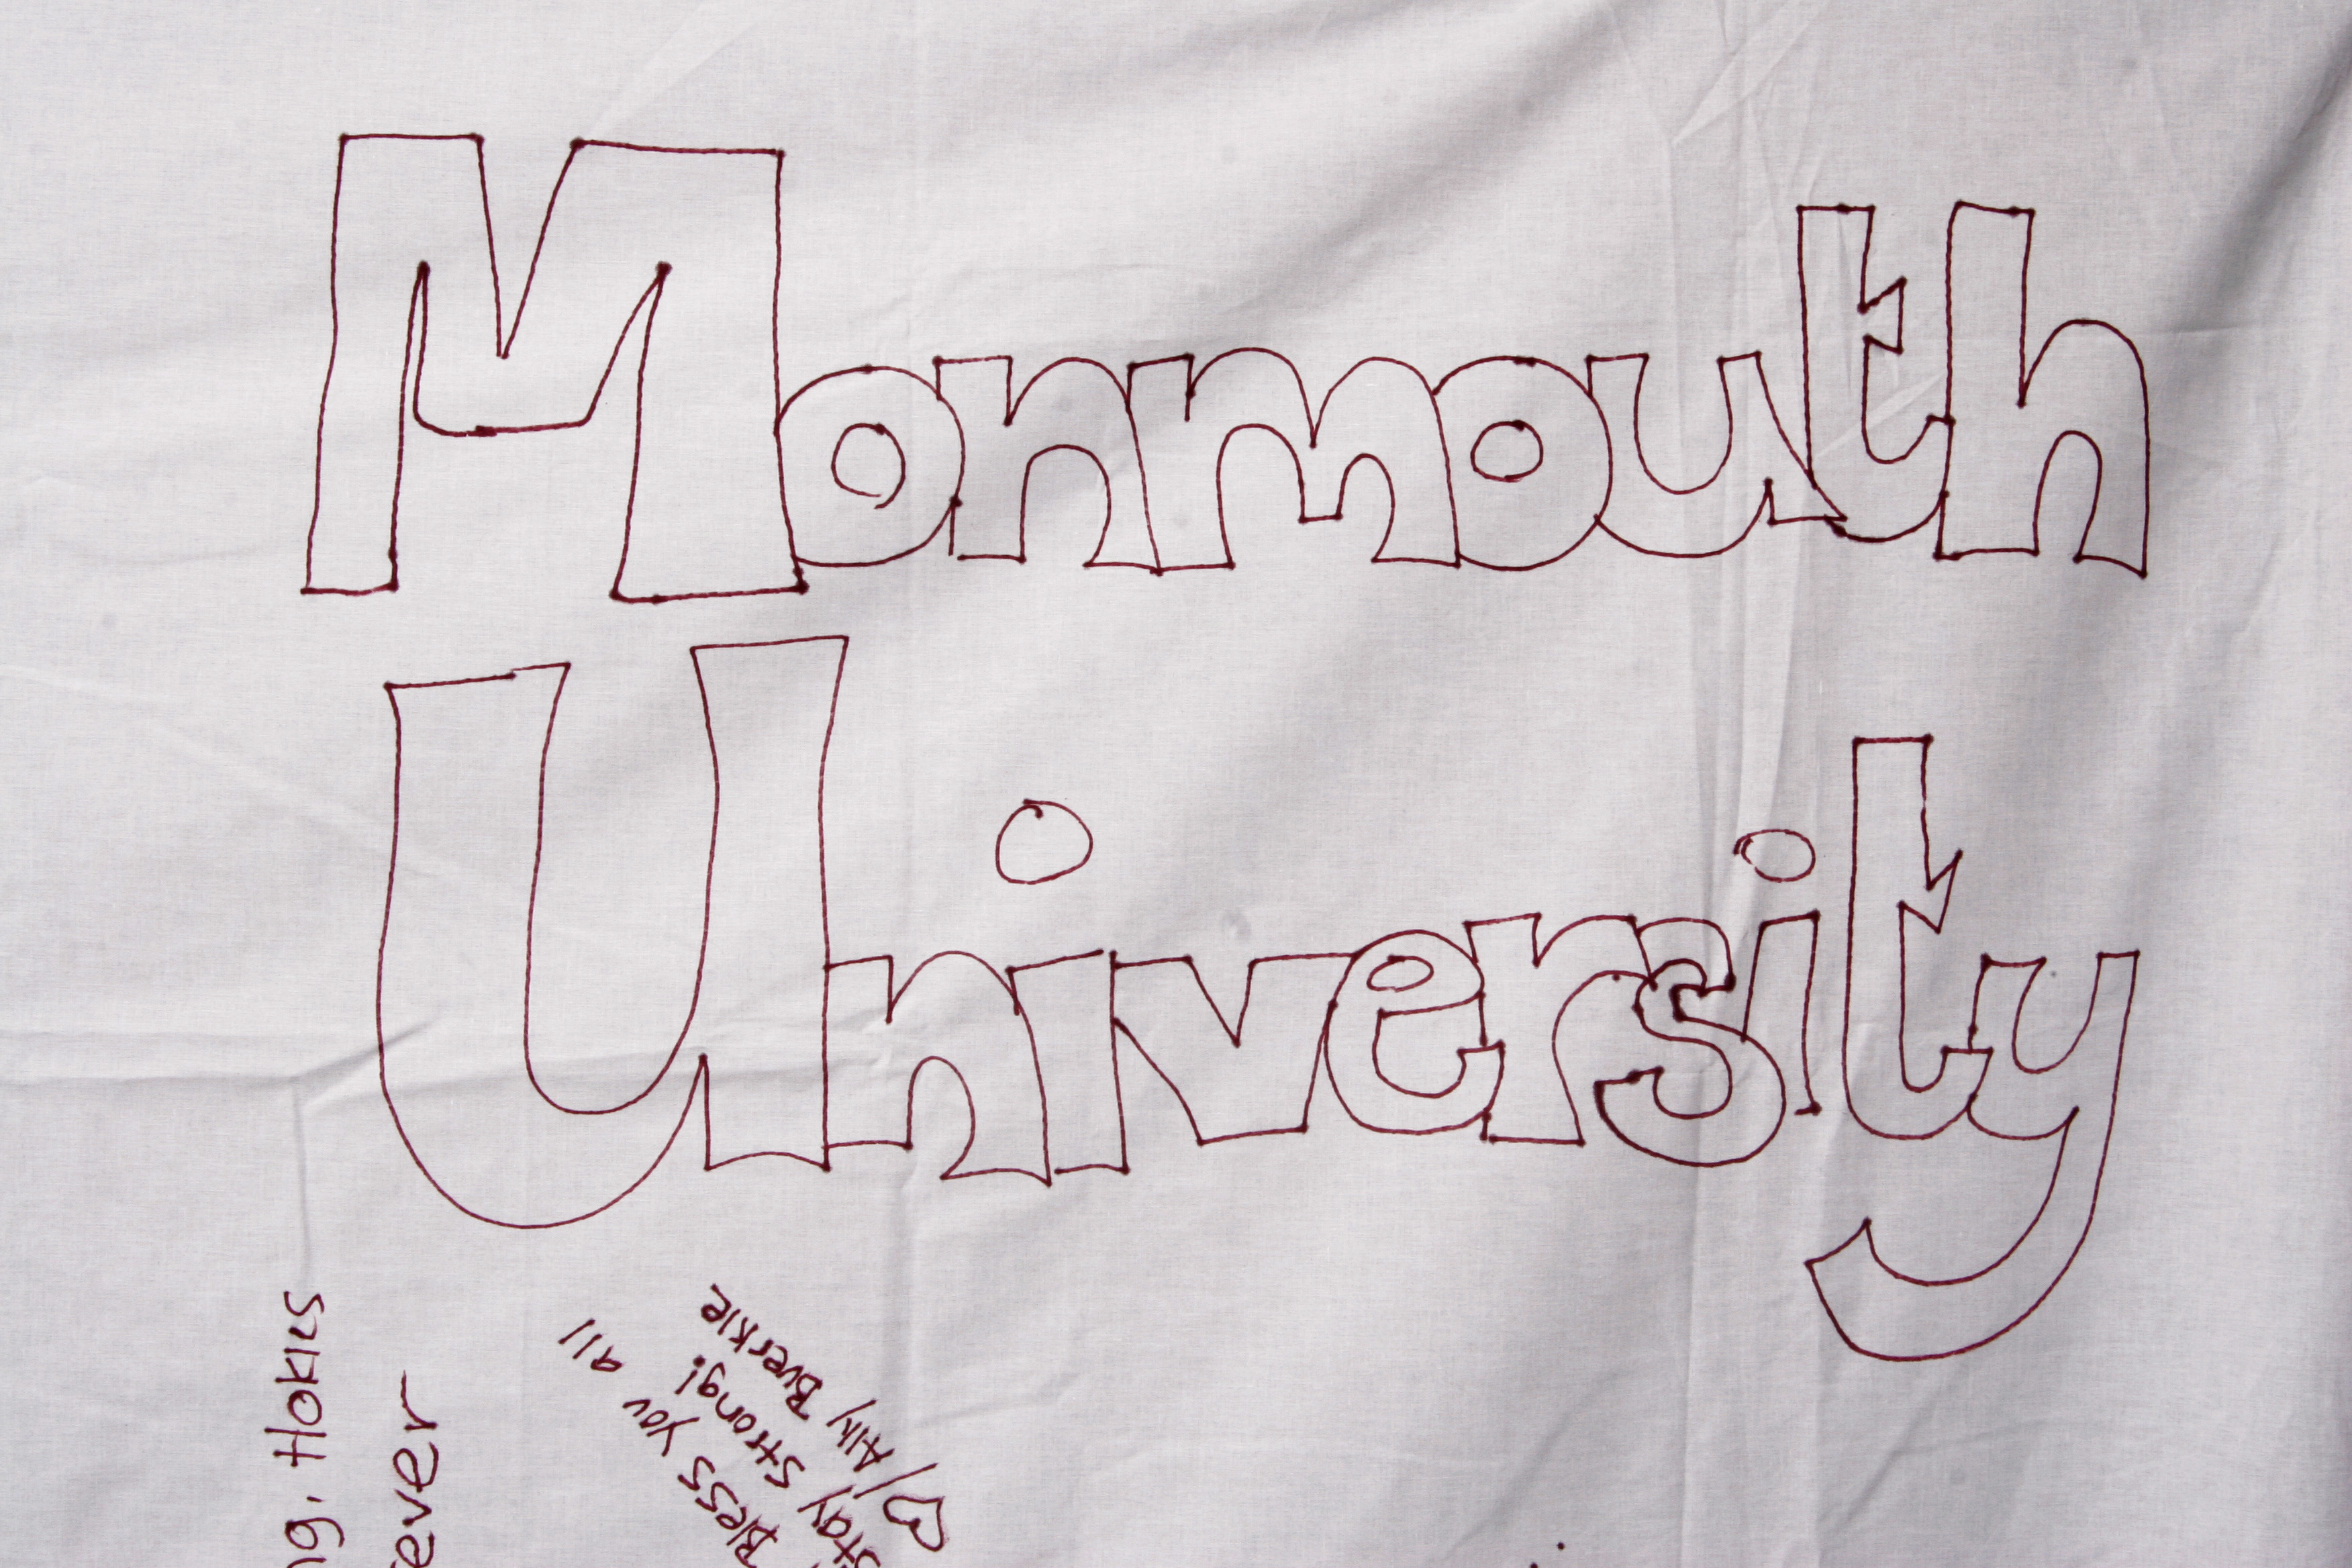 Monmouth
University
ng, Hokies
ever
Bless you all
Stay Strong!
♡/Ally Buerkle